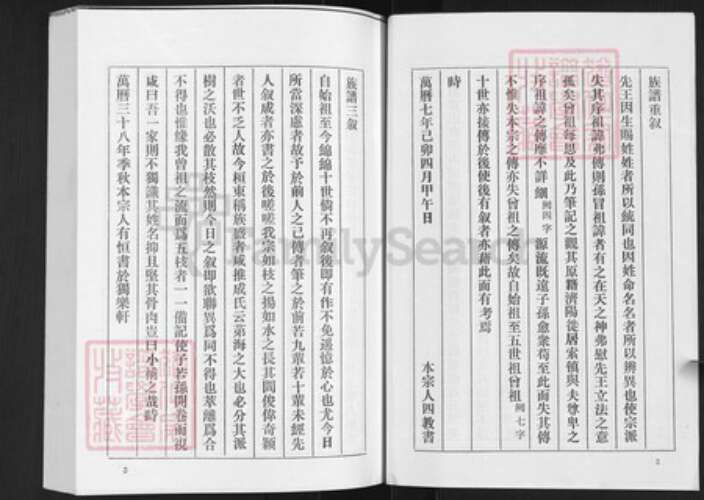 族譜重敘
先王因生賜姓姓者所以統同也因姓命名名者所以辨異也使宗派
失其序祖諱弗傳則孫冒祖諱者有之在天之神弗慰先王立法之意
孤矣曾祖每思及此乃筆記之觀其原籍濟陽徙居索鎮與夫尊卑之
序祖諱之傳靡不詳 闕四字 源流既遠子孫愈衆苟至此而失其傳
不惟失本宗之傳亦失曾祖之傳矣故自始祖至五世祖曾祖 闕七字
十世亦接傳於後使後有敘者亦藉此而有考焉
時
萬曆七年己卯四月甲午日
本宗人四教書
2
族譜三敘
自始祖至今綿綿十世倘不再敘後即有作不免遙憶於心也尤今日
所當深慮者故予於前人之已傳者筆之於前若九輩若十輩未經先
人敘成者亦書之於後嗟嗟我宗如枝之揚如水之長其間俊偉奇穎
者世不乏人故今桓東稱族盛者咸推成氏云第海之大也必分其派
樹之沃也必散其枝然則今日之敘即欲聯異爲同不得也萃離爲合
不得也惟緣我曾祖之流而爲五枝者一一備記使子若孫開卷而視
咸曰吾一家則不獨識其姓名抑且堅其骨肉豈曰小補之哉時
萬曆三十八年季秋本宗人有恒書於獨樂軒
3
FamilySearch